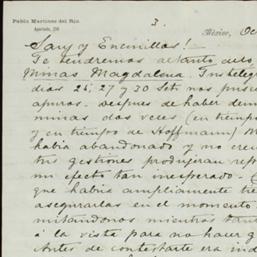 Pablo Martinez del Rio
Apartado, 250
3.
México, Oc
Sauz y Encinillas!
Te tendremos al tanto de
Minas Magdalena. Tus teleg
dias 26, 27 y 30 Set. nos pusie
apuros. Despues de haber
minas dos veces (en tiempo
y en tiempo de Hoffmann)
habia abandonado y no cre
tus gestiones produjeran rep
un efecto tan inesperado.
que habia ampliamente tie
asegurarlas en el momento
mitandonos mientras tan
á la vista para no hacer g
Antes de contestarte era ind